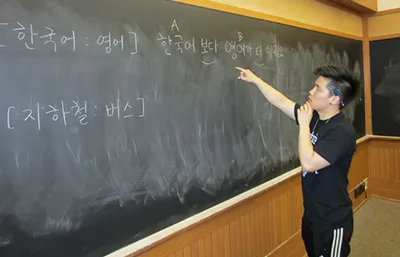 A B
[한국어 : 영어] 한국어 보다 영어가 더 쉬워요
[지하철 : 버스]